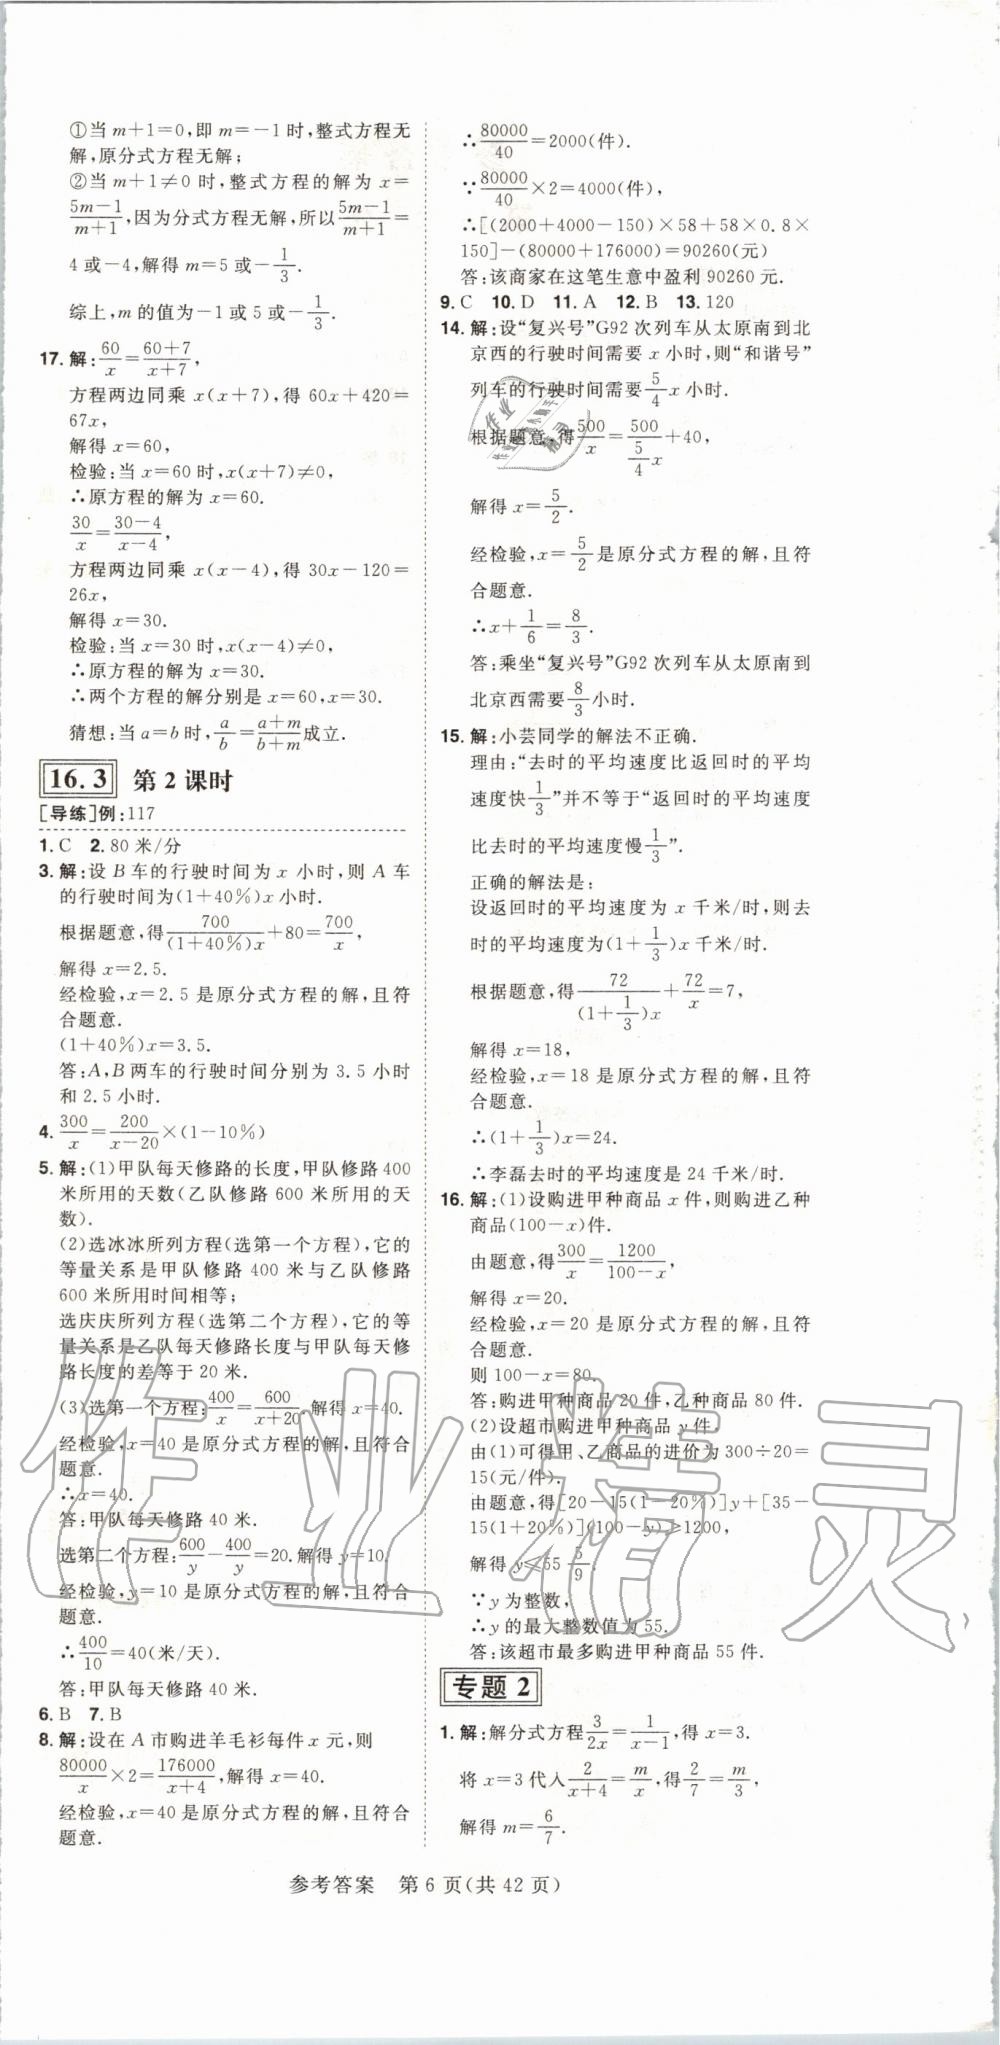 ①当 m+1=0,即 m=-1 时,整式方程无
解,原分式方程无解;
②当 m+1≠0 时,整式方程的解为 x=
5m-1/m+1,因为分式方程无解,所以5m-1/m+1=
4 或-4,解得 m=5 或-1/3.
综上,m 的值为-1 或 5 或-1/3.
17. 解:60/x=60+7/x+7,
方程两边同乘 x(x+7),得 60x+420=
67x,
解得 x=60,
检验:当 x=60 时,x(x+7)≠0,
∴原方程的解为 x=60.
30/x=30-4/x-4,
方程两边同乘 x(x-4),得 30x-120=
26x,
解得 x=30.
检验:当 x=30 时,x(x-4)≠0,
∴原方程的解为 x=30.
∴两个方程的解分别是 x=60,x=30.
猜想:当 a=b 时,a/b=a+m/b+m成立.
16.3 第 2 课时
[导练]例:117
1. C 2. 80 米/分
3. 解:设 B 车的行驶时间为 x 小时,则 A 车
的行驶时间为(1+40%)x 小时.
根据题意,得700/(1+40%)x+80=700/x,
解得 x=2.5.
经检验,x=2.5 是原分式方程的解,且符
合题意.
(1+40%)x=3.5.
答:A,B 两车的行驶时间分别为 3.5 小时
和 2.5 小时.
4. 300/x=200/x-20×(1-10%)
5. 解:(1)甲队每天修路的长度,甲队修路 400
米所用的天数(乙队修路 600 米所用的天
数).
(2)选冰冰所列方程(选第一个方程),它的
等量关系是甲队修路 400 米与乙队修路
600 米所用时间相等;
选庆庆所列方程(选第二个方程),它的等
量关系是乙队每天修路长度与甲队每天修
路长度的差等于 20 米.
(3)选第一个方程:400/x=600/x+20.解得 x=40.
经检验,x=40 是原分式方程的解,且符合
题意.
∴x=40.
答:甲队每天修路 40 米.
选第二个方程:600/y-400/y=20.解得 y=10.
经检验,y=10 是原分式方程的解,且符合
题意.
∴400/10=40(米/天).
答:甲队每天修路 40 米.
6. B 7. B
8. 解:设在 A 市购进羊毛衫每件 x 元,则
80000/x×2=176000/x+4,解得 x=40.
经检验,x=40 是原分式方程的解,且符合
题意.
∴80000/40=2000(件).
∵80000/40×2=4000(件),
∴[(2000+4000-150)×58+58×0.8×
150]-(80000+176000)=90260(元)
答:该商家在这笔生意中盈利 90260 元.
9. C 10. D 11. A 12. B 13. 120
14. 解:设“复兴号”G92 次列车从太原南到北
京西的行驶时间需要 x 小时,则“和谐号”
列车的行驶时间需要5/4x 小时.
根据题意,得500/x=500/(5/4)x+40,
解得 x=5/2.
经检验,x=5/2是原分式方程的解,且符
合题意.
∴x+1/6=8/3.
答:乘坐“复兴号”G92 次列车从太原南到
北京西需要8/3小时.
15. 解:小芸同学的解法不正确.
理由:“去时的平均速度比返回时的平均
速度快1/3”并不等于“返回时的平均速度
比去时的平均速度慢1/3”.
正确的解法是:
设返回时的平均速度为 x 千米/时,则去
时的平均速度为(1+1/3)x 千米/时.
根据题意,得72/(1+1/3)x+72/x=7,
解得 x=18,
经检验,x=18 是原分式方程的解,且符
合题意.
∴(1+1/3)x=24.
∴李磊去时的平均速度是 24 千米/时.
16. 解:(1)设购进甲种商品 x 件,则购进乙种
商品(100-x)件.
由题意,得300/x=1200/100-x,
解得 x=20.
经检验,x=20 是原分式方程的解,且符
合题意.
则 100-x=80.
答:购进甲种商品 20 件,乙种商品 80 件.
(2)设超市购进甲种商品 y 件.
由(1)可得甲、乙商品的进价为 300÷20=
15(元/件).
由题意,得[20-15(1-20%)]y+[35-
15(1+20%)](100-y)≥1200,
解得 y≤55 5/9.
∵y 为整数,
∴y 的最大整数值为 55.
答:该超市最多购进甲种商品 55 件.
专题 2
1. 解:解分式方程3/2x=1/x-1,得 x=3.
将 x=3 代入2/x+4=m/x,得2/7=m/3,
解得 m=6/7.
参考答案 第 6 页(共 42 页)
作业精灵